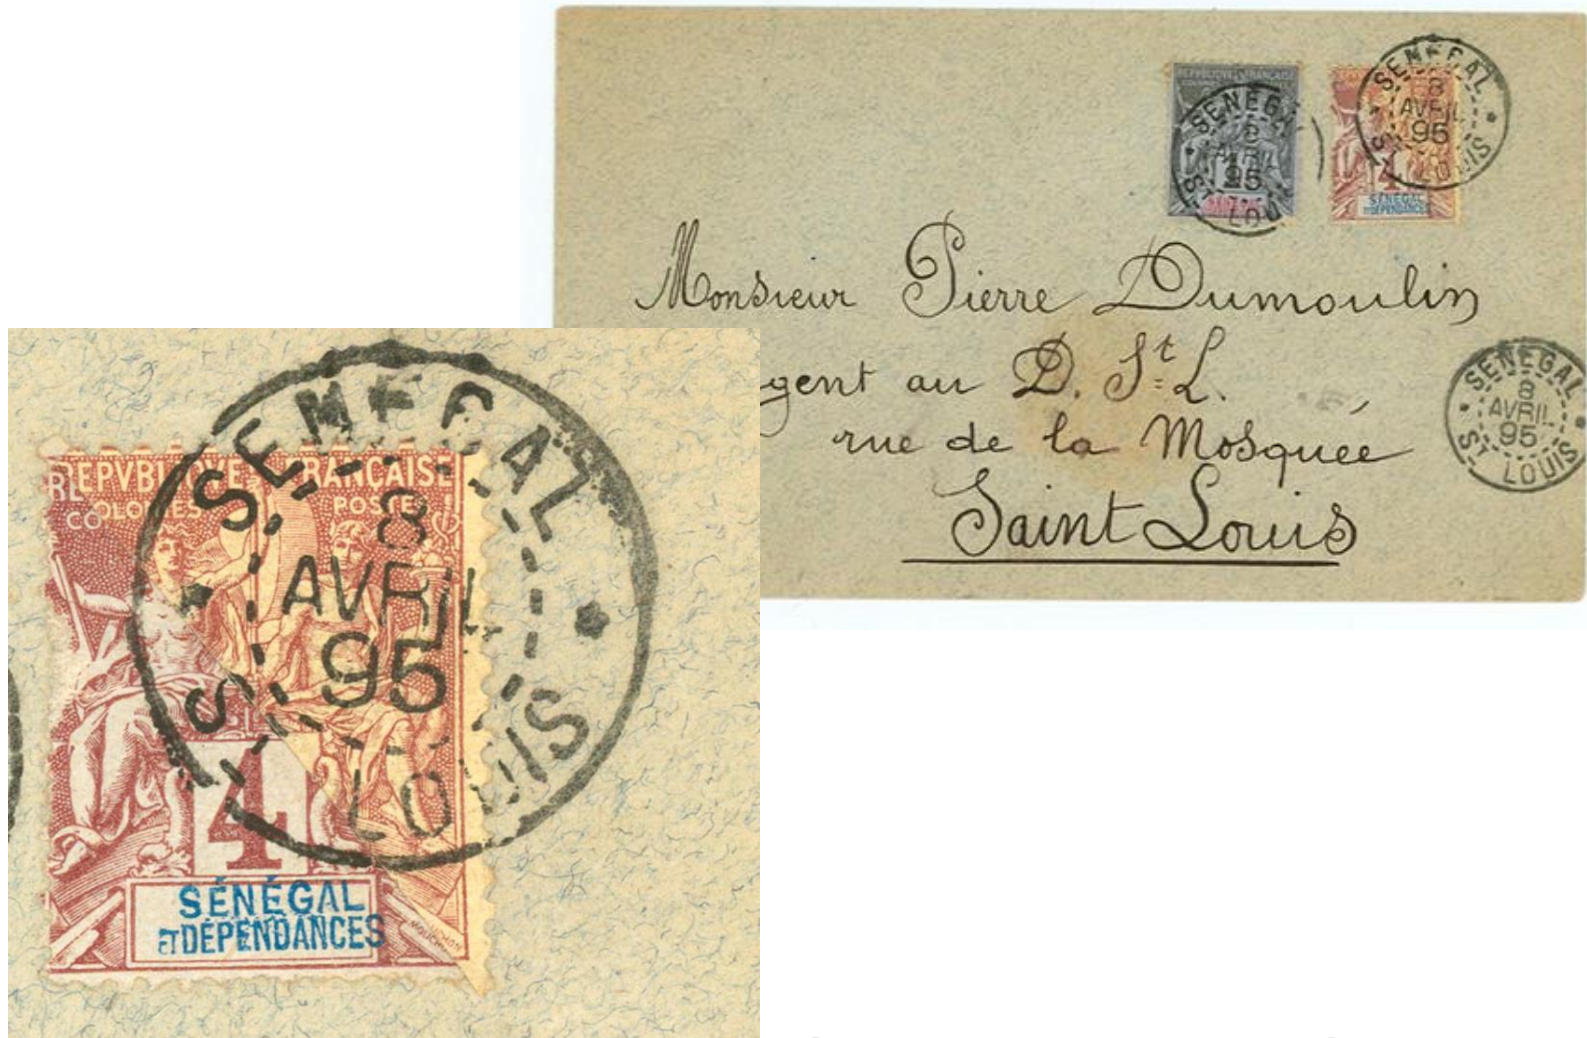 REPVBLIQVE FRANÇAISE
SENEGAL
8
AVRIL
95
ST LOUIS
SENEGAL
8
AVRIL
95
ST LOUIS
4
SÉNÉGAL
ET DÉPENDANCES
Monsieur Pierre Dumoulin
gent au D. St L.
rue de la Mosquée
Saint Louis
SENEGAL
8
AVRIL
95
ST LOUIS
REPVBLIQVE FRANÇAISE
COLONIES POSTES
SENEGAL
8
AVRIL
95
ST LOUIS
4
SÉNÉGAL
ET DÉPENDANCES
MOUCHON